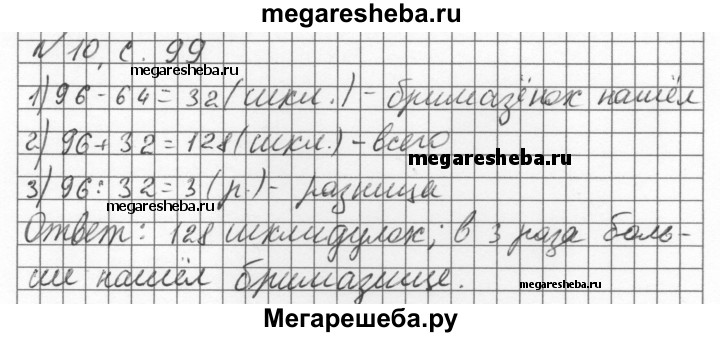 megaresheba.ru
№ 10, с. 99
megaresheba.ru
1) 96 - 64 = 32 (шкл.) - бримазёнок нашёл
2) 96 + 32 = 128 (шкл.) - всего
megaresheba.ru
3) 96 : 32 = 3 (р.) - разница
megaresheba.ru
Ответ: 128 шклидулок; в 3 раза боль-
ше нашёл бримазище.
megaresheba.ru
Мегарешеба.ру